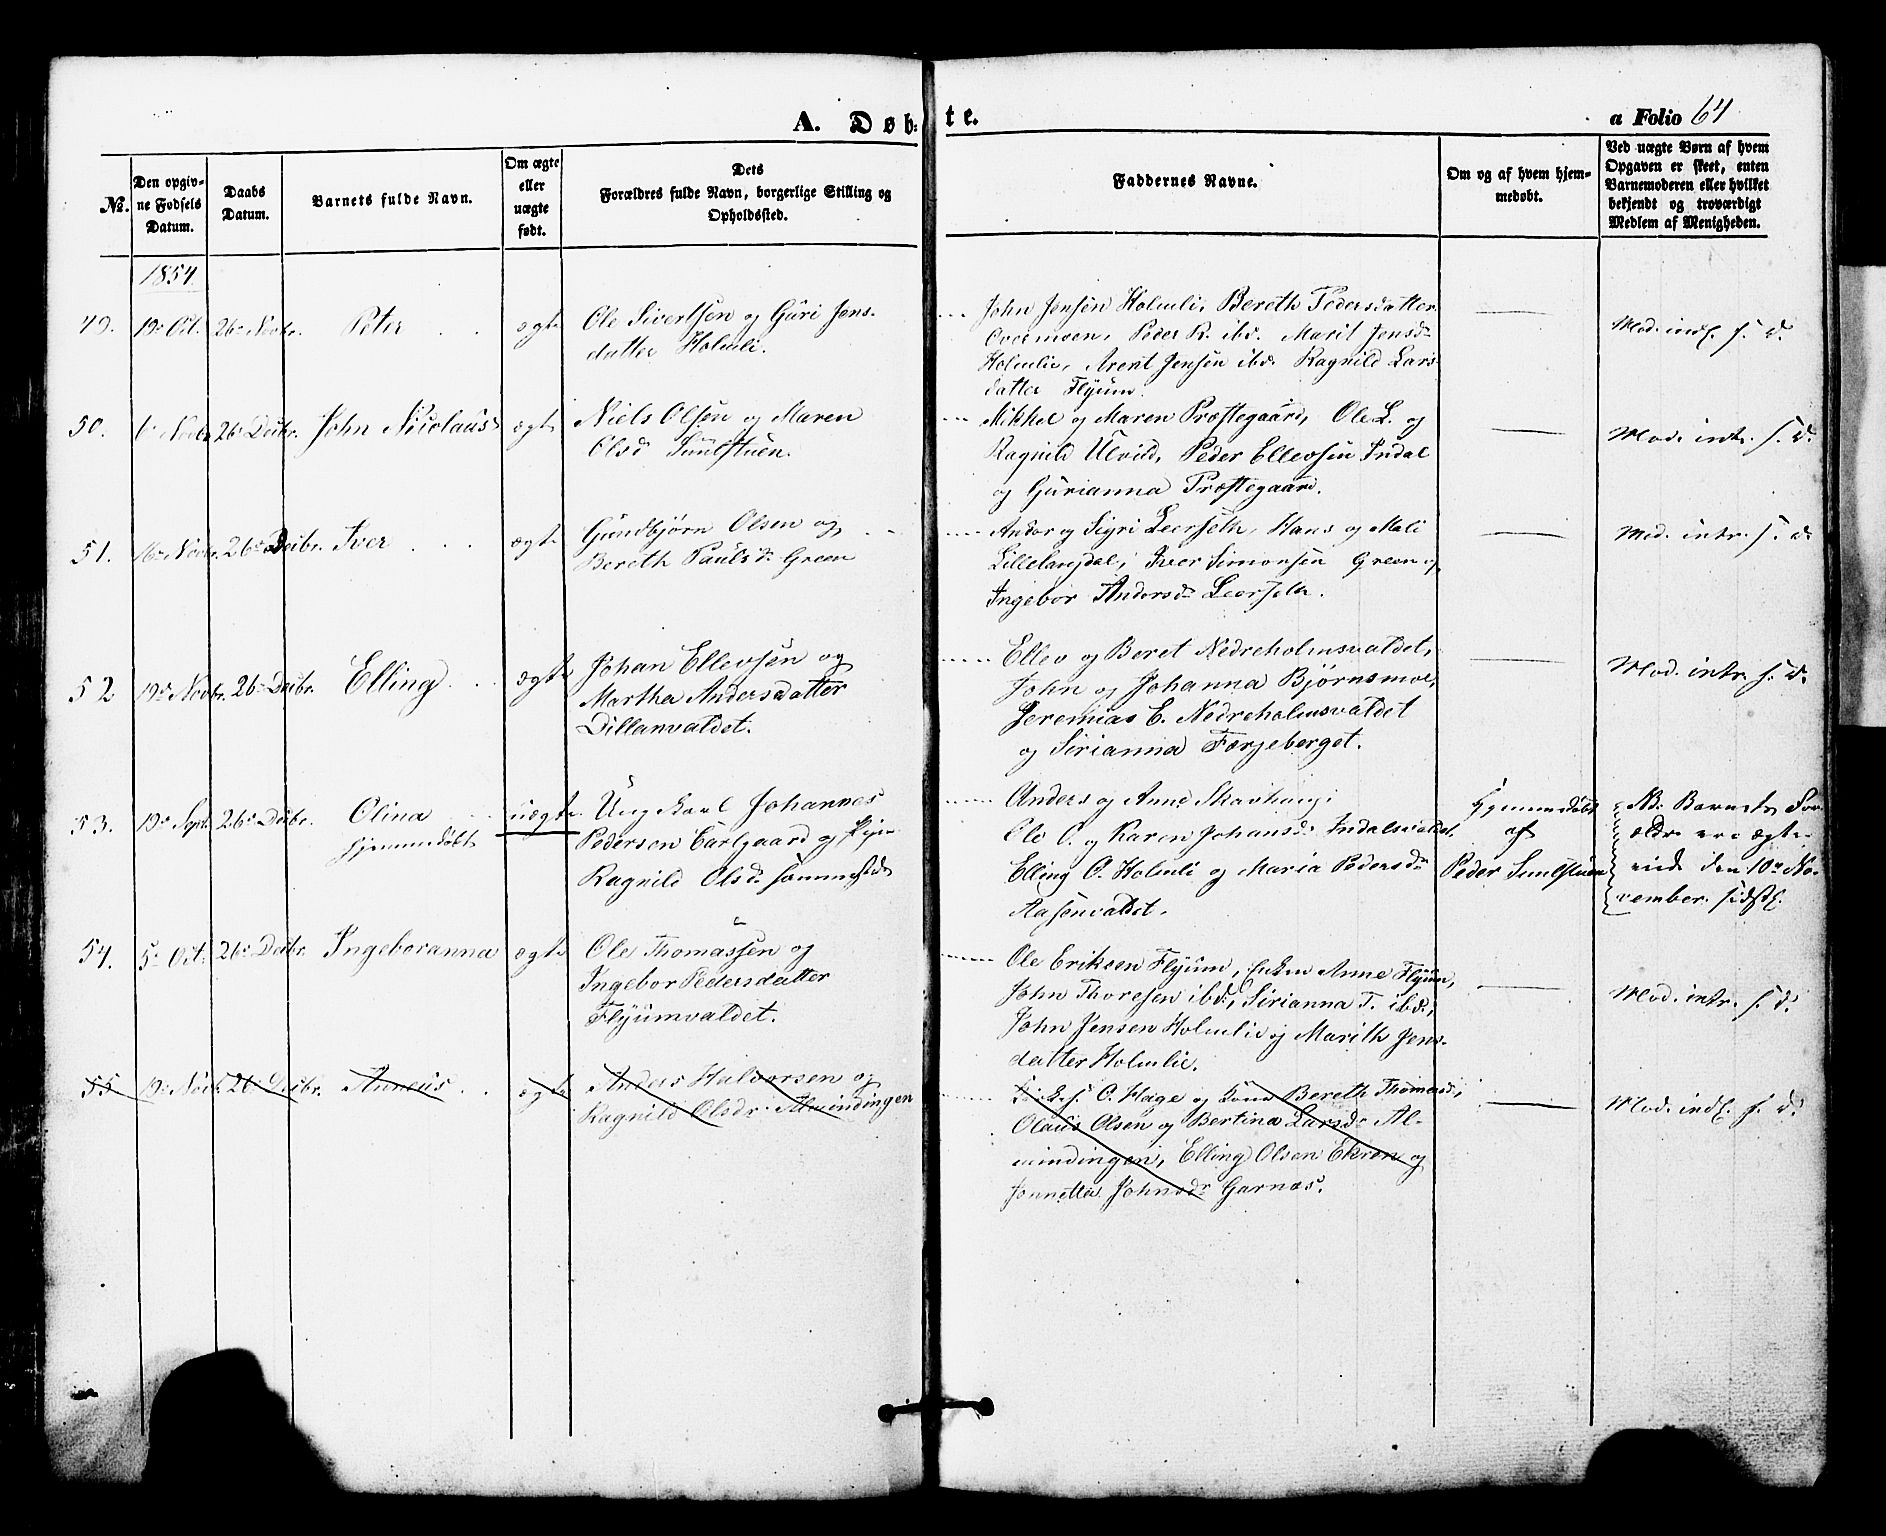 A. Døb-
te.
a Folio 64
No.
Den opgiv-
ne Fødsels
Datum.
Daabs
Datum.
Barnets fulde Navn.
Om ægte
eller
uægte
født.
Dets
Forældres fulde Navn, borgerlige Stilling og
Opholdssted.
Faddernes Navne.
Om og af hvem hjem-
medøbt.
Ved uægte Børn af hvem
Opgaven er skeet, enten
Barnemoderen eller hvilket
bekjendt og troværdigt
Medlem af Menigheden.
1854.
49. 19de Oct. 26de Novbr. Peter ægte
Ole Sivertsen og Guri Jens-
datter Holmli.
John Jensen Holmli, Bereth Pedersdatter
Overmoen, Peder R. ibd. Marit Jensdr
Holmlie, Arent Jensen ibd. Ragnild Lars-
datter Flyum.
Mod. indl. s. d.
50. Novbr 26de Decbr. John Nicolaus ægte
Niels Olsen og Maren
Olsd Suulstuen.
Mikkel og Maren Præstegaard, Ole L. og
Ragnild Ulvild, Peder Ellevsen Indal
og Gurianna Præstegaard.
Mod. intr. s. d.
51. 16de Novbr. 26de Decbr. Iver ægte
Gundbjørn Olsen og
Bereth Paulsdr Green
Andor og Sigri Leerseth, Hans og Mali
Lillelangdal, Iver Simonsen Green og
Ingebor Andorsdr Leerseth.
Mod. intr. s. d.
52 19de Novbr. 26de Decbr. Elling ægte
Johan Ellevsen og
Martha Andersdatter
Dillanvaldet.
Ellev og Beret Nedreholmsvaldet,
John og Johanna Bjørnsmoe,
Jeremias E. Nedreholmsvaldet
og Sirianna Færjeberget.
Mod. intr. s. d.
53. 19de Sept. 26de Decbr. Olina uægte
hjemmedøbt
Ungkarl Johannes
Pedersen Carlgaard og Pige
Ragnild Olsdr sammesteds
Anders og Anne Skavhaug,
Ole O. og Karen Johansdr Indalsvaldet.
Elling O. Holmli og Maria Pedersdr
Aasenvaldet.
Hjemmedøbt
af
Peder Suulstuen
NB. Barnets For-
ældre ere ægte-
viede den 10de No-
vember sidstl.
54. 5te Oct. 26de Decbr. Ingeboranna ægte
Ole Thomassen og
Ingebor Pedersdatter
Flyumvaldet.
Ole Eriksen Flyum, Enken Anne Flyum,
John Thoresen ibd., Sirianna T. ibd.,
John Jensen Holmlie og Marith Jens-
datter Holmlie.
Mod. intr. s. d.
55 19de Novbr. 26de Decbr. Anneus ægte
Anders Halvorsen og
Ragnild Olsdr. Almindingen
O. Hage og Kone Bereth Thomasd,
Olaus Olsen og Bertina Larsdr Al-
mindingen, Elling Olsen Ekren og
Jonnetta Johnsdr Garnæs.
Mod. indl. s. d.